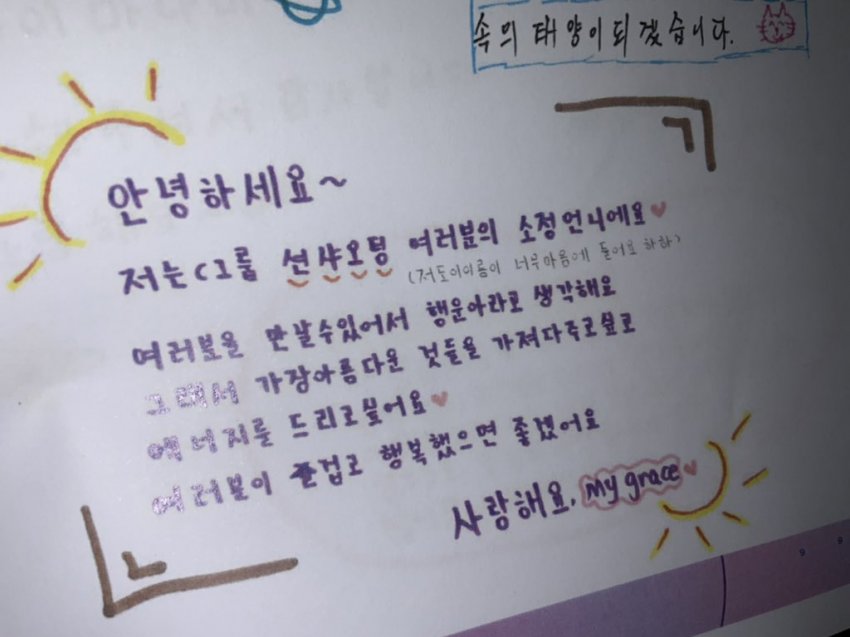 속의 태양이되겠습니다.
안녕하세요~
저는 C그룹 선샤오팅 여러분의 소정언니에요♥
(저도이이름이 너무마음에 들어요 하하)
여러분을 만날수있어서 행운아라고 생각해요
그래서 가장아름다운 것들을 가져다주고싶고
에너지를 드리고싶어요♥
여러분이 즐겁고 행복했으면 좋겠어요
사랑해요. My grace♥
9 9